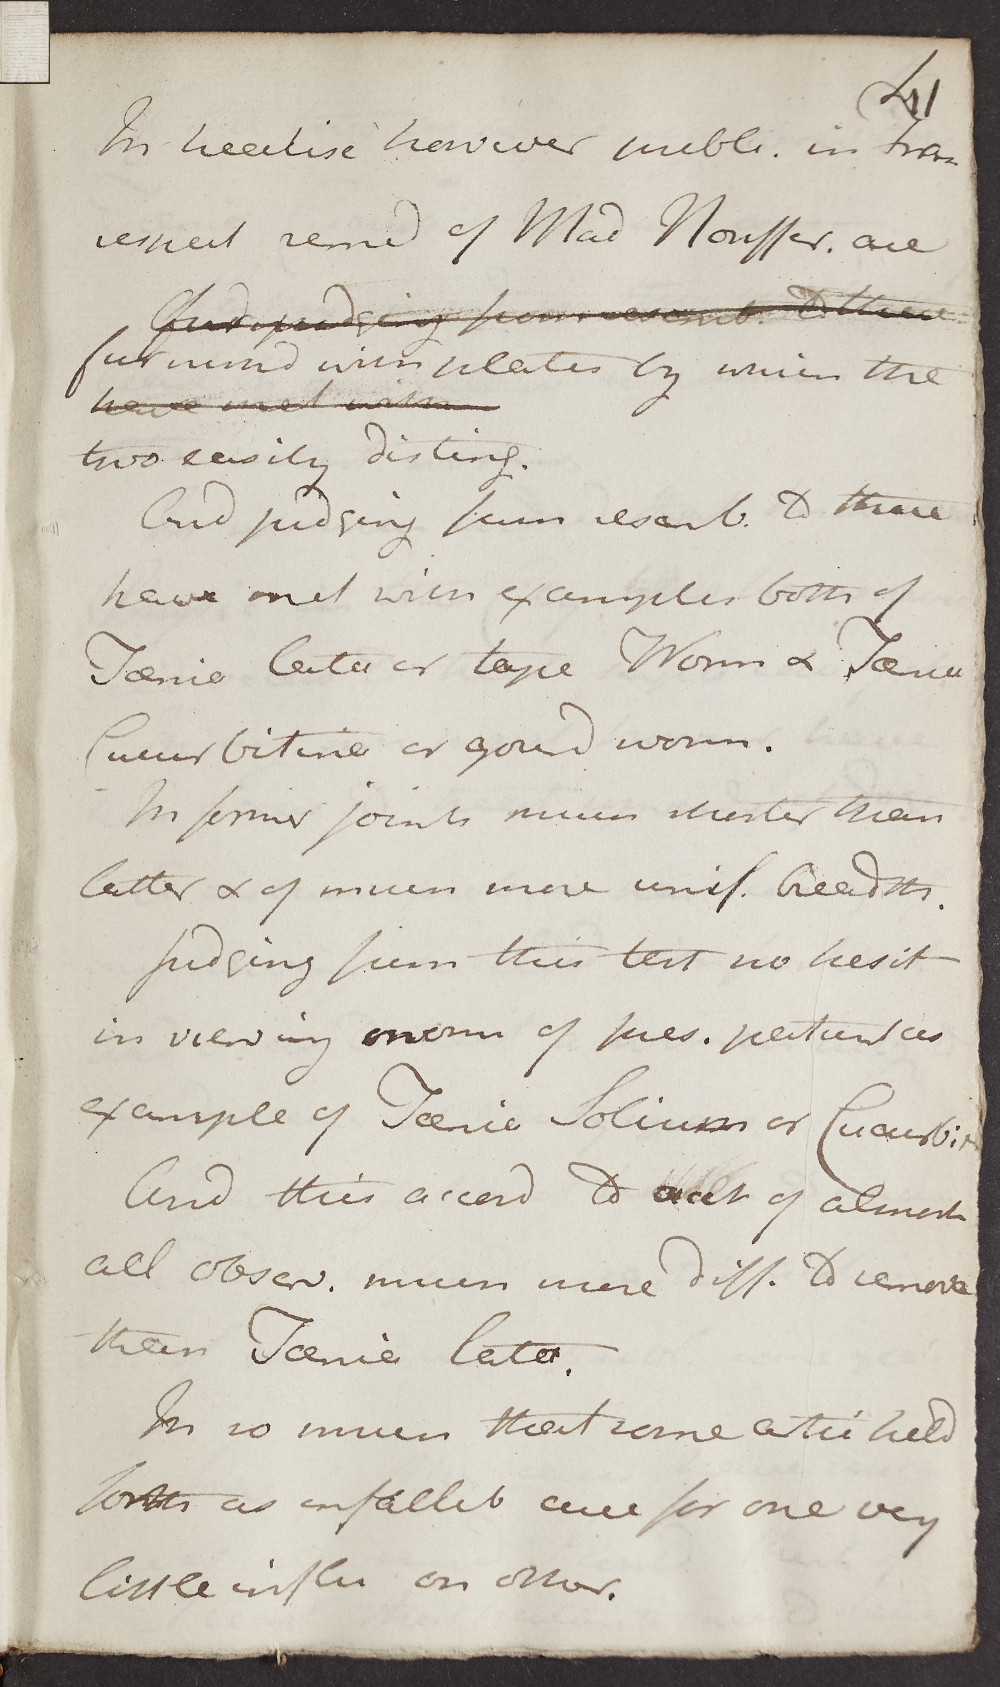 41
In treatise however publi. in Fran
respect remed of Mad Nouffer. are
And judging from resemb. to these
furnishd with plates by which the
have met with
two easily disting.
And judging from resemb. to these
have met with examples both of
Tænia lata or tape Worm & Tænia
Cucurbitina or gourd worm.
In former joints much shorter than
latter & of much more unif. breadth.
Judging from this test no hesit
in viewing worm of pres. patient as
example of Tænia Solium or Cucurbit
And this accord to acct of almost
all observ. much more diff. to remove
than Tænia lata.
In so much that some artic held
forth as infallib cure for one very
little influ on other.